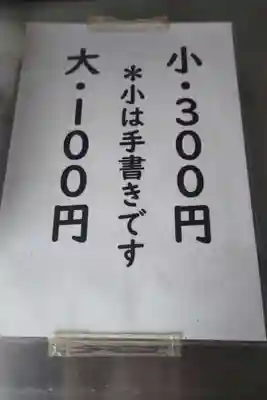 小・300円
＊小は手書きです
大・100円